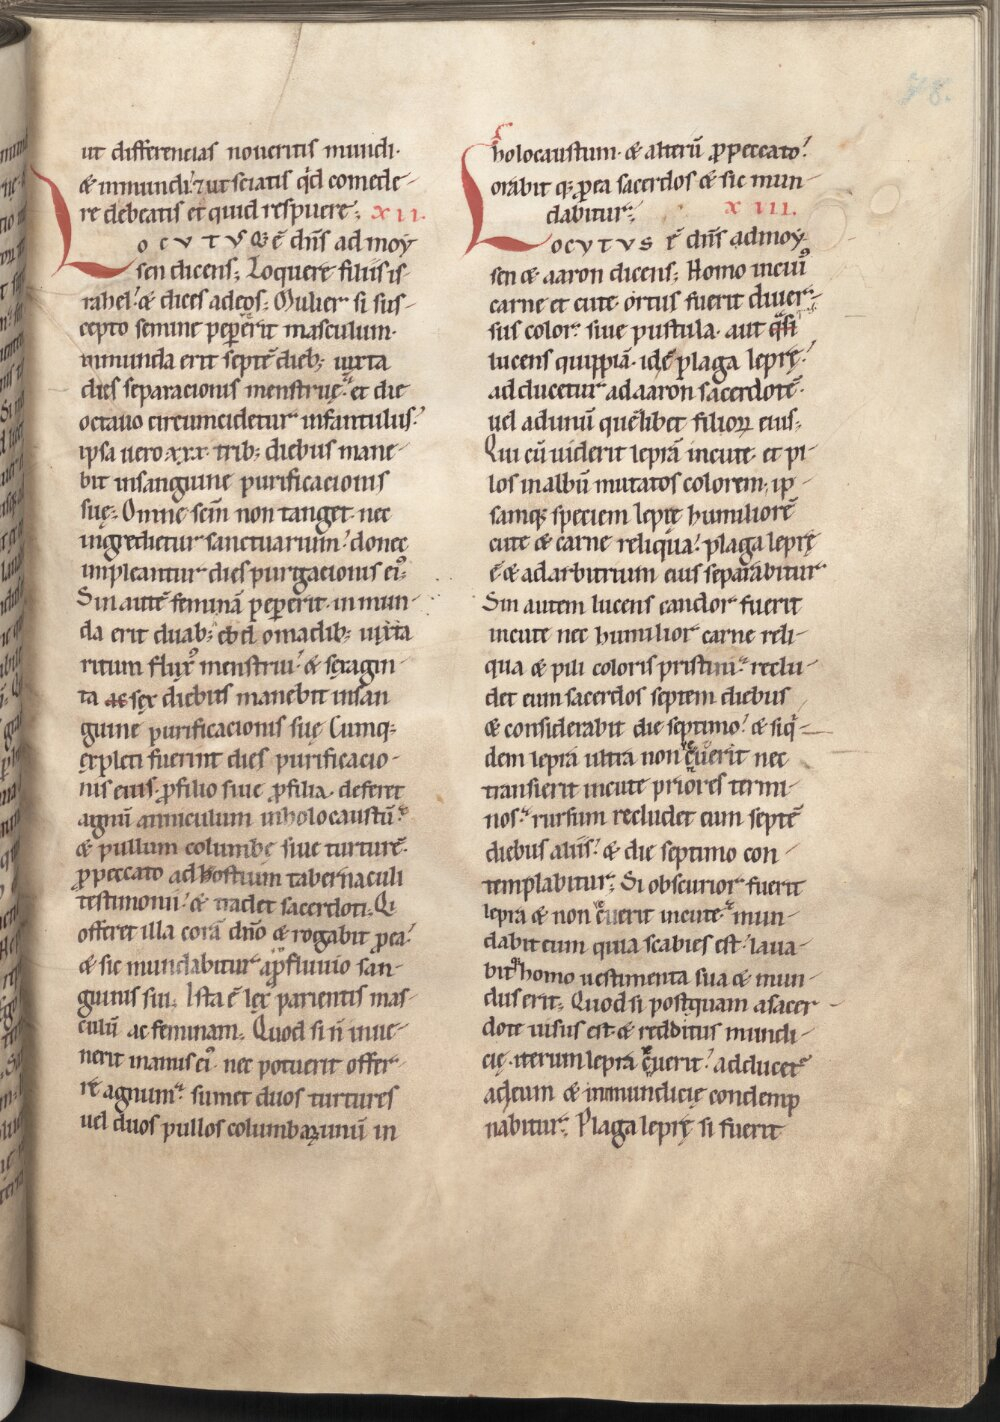 ut differencias noueritis mundi·
& inmundi:́ ⁊ ut sciatis qd̄ comede-
re debeatis et quid respuere; XII.
LOCUTUSQ; ē dn̄s ad moy
sen dicens; Loquere filiis is-
rahel:́ & dices ad eos; Mulier si sus-
cepto semine pepererit masculum·
inmunda erit septē dieb; iuxta
dies separacionis menstruę· et die
octauo circumcidetur infantulus:́
ipsa uero xxx· trib; diebus mane-
bit in sanguine purificacionis
suę; Omne scm̄ non tanget· nec
ingredietur sanctuarium:́ donec
impleantur dies purgacionis ei᾽;
Sin autē feminā pepererit· inmun-
da erit duab; ebdomadib; iuxta
ritum flux᾽ menstrui:́ & sexagin-
ta ac sex diebus manebit in san
guine purificacionis suę Cumq;
expleti fuerint dies purificacio-
nis eius· ꝓ filio siue ꝓ filia· deferet
agnū anniculum in holocaustū:́
& pullum columbe siue turturē·
ꝓ peccato ad hostium tabernaculi
testimonii:́ & tradet sacerdoti; Qi
offeret illa corā dn̄o & rogabit ꝓ ea:́
& sic mundabitur a ꝓfluuio san-
guinis sui; Ista ē lex parientis mas-
culū ac feminam; Quod si n̄ inue-
nerit manus ei᾽· nec potuerit offer-
re agnum:́ sumet duos turtures
uel duos pullos columbarum unū in
holocaustum· & alterū ꝓ peccato:́
orabit q; ꝓ ea sacerdos & sic mun-
dabitur; XIII.
LOCUTUS ē dn̄s ad moy
sen & aaron dicens; Homo in cui᾽
carne et cute ortus fuerit diuer-
sus color:́ siue pustula· aut qͣsi
lucens quippiā· id ē plaga leprę:́
adducetur ad aaron sacerdotē·
uel ad unū quēlibet filioꝝ eius;
Qui cū uiderit leprā in cute· et pi-
los in albū mutatos colorem· ip-
samq; speciem leprę humiliorē
cute & carne reliqua:́ plaga leprę
ē & ad arbitrium eius separabitur
Sin autem lucens candor fuerit
in cute nec humilior carne reli-
qua & pili coloris pristini:́ reclu-
det eum sacerdos septem diebus
& considerabit die septimo:́ & siq̇-
dem lepra ultra non c̄uerit nec
transierit in cute priores termi-
nos:́ rursum recludet eum septē
diebus aliis:́ & die septimo con-
templabitur; Si obscurior fuerit
lepra & non c̄uerit in cute:́ mun-
dabit eum quia scabies est:́ laua-
bitqͣ homo uestimenta sua & mun-
dus erit; Quod si postquam a sacer
dote uisus est & redditus mundi-
cię· iterum lepra c̄uerit:́ adducet᾽
ad eum & inmundicię condemp
nabitur; Plaga leprę si fuerit